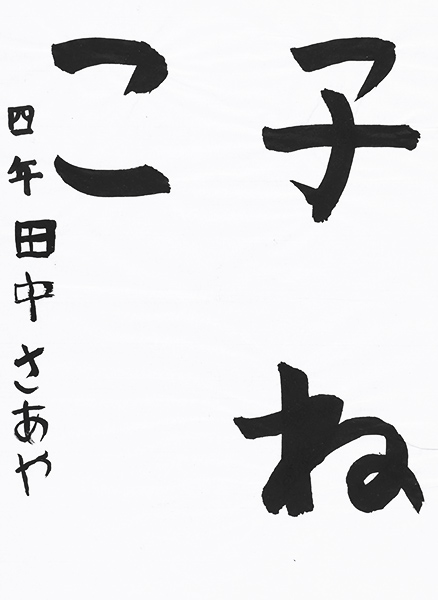 子ね
こ
四年田中さあや